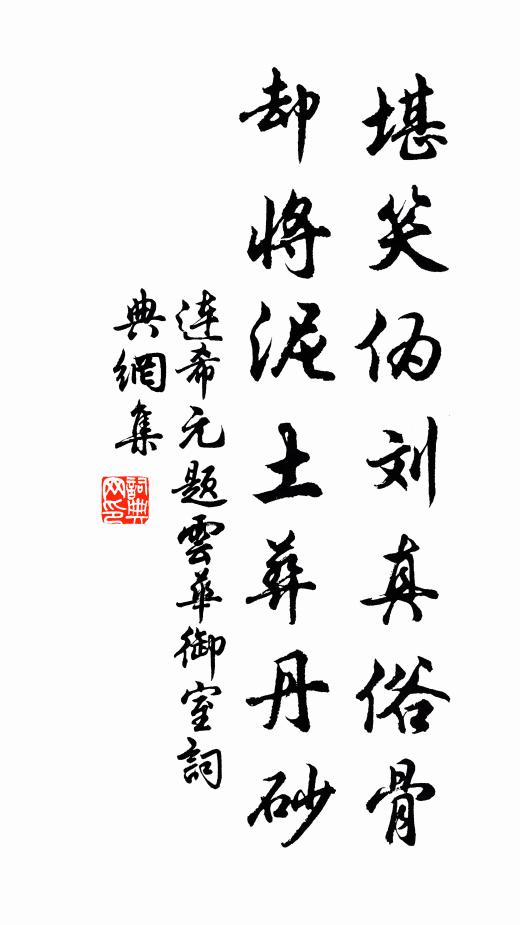 堪笑伪刘真俗骨
却将泥土葬丹砂
连希元题云华御室词
典網集
詞典网印